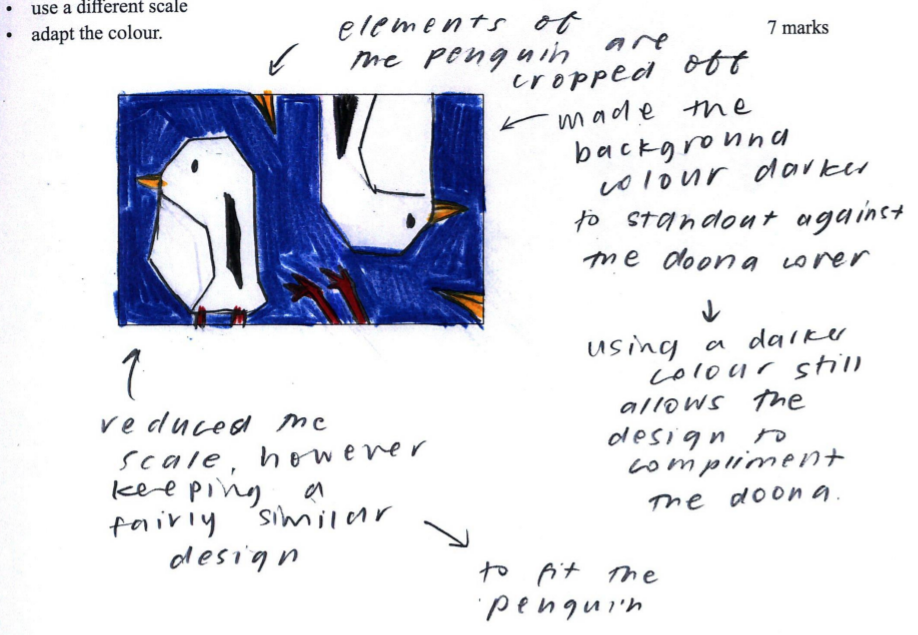 • use a different scale
• adapt the colour.
7 marks
elements of
the penguin are
cropped off
made the
background
colour darker
to standout against
the doona cover
using a darker
colour still
allows the
design to
compliment
the doona.
reduced the
scale, however
keeping a
fairly similar
design
to fit the
penguin